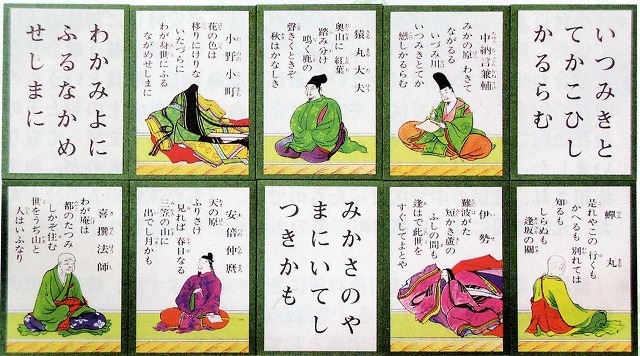 いつみきと
てかこひし
かるらむ
中納言兼輔
みかの原 わきて
ながるる
いづみ川
いつみきとてか
戀しかるらむ
猿丸大夫
奥山に 紅葉
踏み分け
鳴く鹿の
聲きくときぞ
秋はかなしき
小野小町
花の色は
移りにけりな
いたづらに
わが身世にふる
ながめせしまに
わかみよに
ふるなかめ
せしまに
蟬丸
是れやこの 行くも
かへるも 別れては
知るも
しらぬも
逢坂の關
伊勢
難波がた
短かき蘆の
ふしの間も
逢はで此世を
すぐしてよとや
みかさのや
まにいてし
つきかも
安倍仲麿
天の原
ふりさけ
見れば 春日なる
三笠の山に
出でし月かも
喜撰法師
わが庵は
都のたつみ
しかぞ住む
世をうぢ山と
人はいふなり